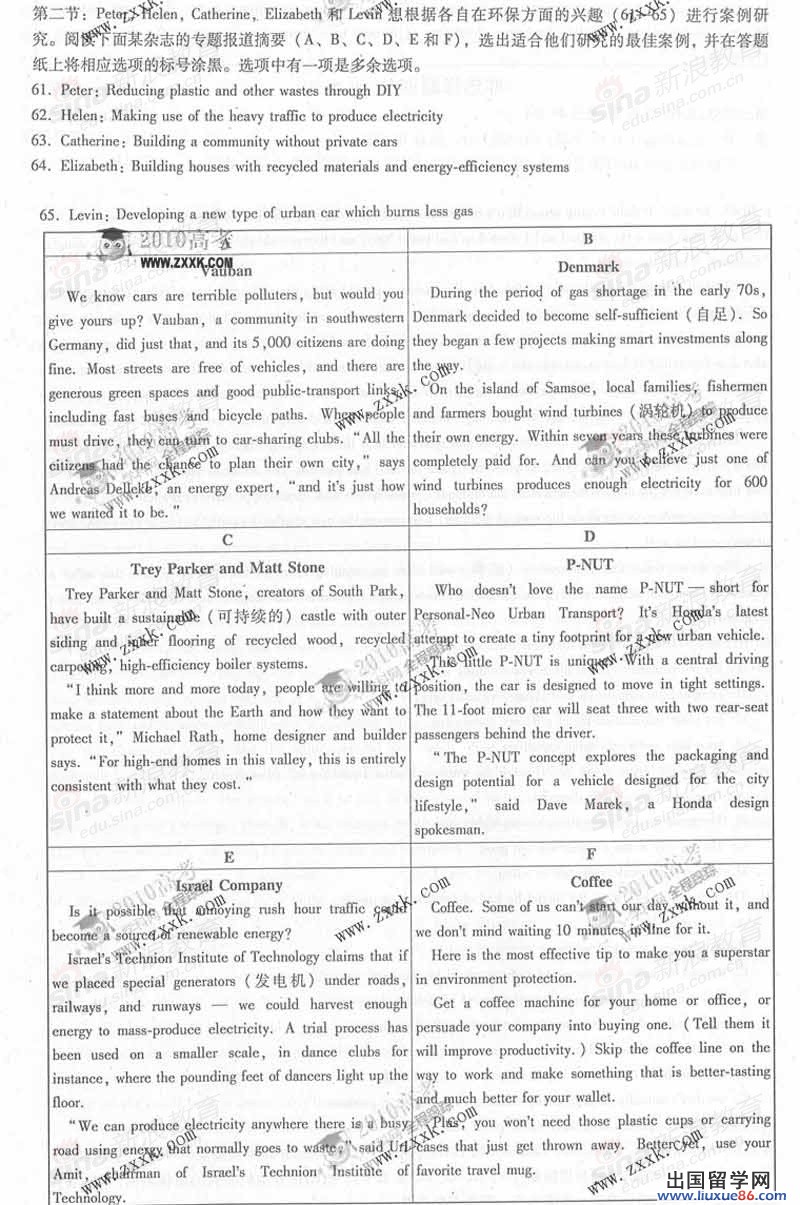 第二节：Peter, Helen, Catherine, Elizabeth 和 Levin 想根据各自在环保方面的兴趣（61-65）进行案例研
究。阅读下面某杂志的专题报道摘要（A、B、C、D、E 和 F），选出适合他们研究的最佳案例，并在答题
纸上将相应选项的标号涂黑。选项中有一项是多余选项。
61. Peter: Reducing plastic and other wastes through DIY
62. Helen: Making use of the heavy traffic to produce electricity
63. Catherine: Building a community without private cars
64. Elizabeth: Building houses with recycled materials and energy-efficiency systems
65. Levin: Developing a new type of urban car which burns less gas
A
Vauban
We know cars are terrible polluters, but would you
give yours up? Vauban, a community in southwestern
Germany, did just that, and its 5,000 citizens are doing
fine. Most streets are free of vehicles, and there are
generous green spaces and good public-transport links,
including fast buses and bicycle paths. When people
must drive, they can turn to car-sharing clubs. "All the
citizens had the chance to plan their own city," says
Andreas Delleke, an energy expert, "and it's just how
we wanted it to be."
B
Denmark
During the period of gas shortage in the early 70s,
Denmark decided to become self-sufficient (自足). So
they began a few projects making smart investments along
the way.
On the island of Samsoe, local families, fishermen
and farmers bought wind turbines (涡轮机) to produce
their own energy. Within seven years these turbines were
completely paid for. And can you believe just one of
wind turbines produces enough electricity for 600
households?
C
Trey Parker and Matt Stone
Trey Parker and Matt Stone, creators of South Park,
have built a sustainable (可持续的) castle with outer
siding and inner flooring of recycled wood, recycled
carpeting, high-efficiency boiler systems.
"I think more and more today, people are willing to
make a statement about the Earth and how they want to
protect it," Michael Rath, home designer and builder
says. "For high-end homes in this valley, this is entirely
consistent with what they cost."
D
P-NUT
Who doesn't love the name P-NUT — short for
Personal-Neo Urban Transport? It's Honda's latest
attempt to create a tiny footprint for a new urban vehicle.
This little P-NUT is unique. With a central driving
position, the car is designed to move in tight settings.
The 11-foot micro car will seat three with two rear-seat
passengers behind the driver.
"The P-NUT concept explores the packaging and
design potential for a vehicle designed for the city
lifestyle," said Dave Marek, a Honda design
spokesman.
E
Israel Company
Is it possible that annoying rush hour traffic could
become a source of renewable energy?
Israel's Technion Institute of Technology claims that if
we placed special generators (发电机) under roads,
railways, and runways — we could harvest enough
energy to mass-produce electricity. A trial process has
been used on a smaller scale, in dance clubs for
instance, where the pounding feet of dancers light up the
floor.
"We can produce electricity anywhere there is a busy
road using energy that normally goes to waste," said Uri
Amit, chairman of Israel's Technion Institute of
Technology.
F
Coffee
Coffee. Some of us can't start our day without it, and
we don't mind waiting 10 minutes in line for it.
Here is the most effective tip to make you a superstar
in environment protection.
Get a coffee machine for your home or office, or
persuade your company into buying one. (Tell them it
will improve productivity.) Skip the coffee line on the
way to work and make something that is better-tasting
and much better for your wallet.
Plus, you won't need those plastic cups or carrying
cases that just get thrown away. Better yet, use your
favorite travel mug.
2010高考
WWW.ZXXK.COM
出国留学网
www.liuxue86.com